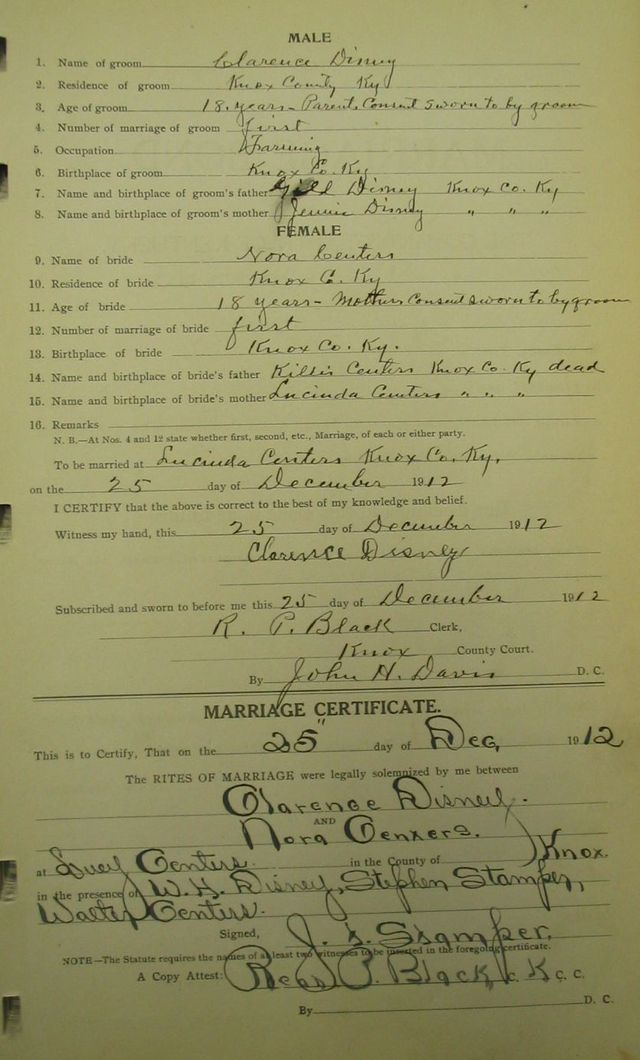 MALE
1. Name of groom Clarence Disney
2. Residence of groom Knox County Ky
3. Age of groom 18 years - Parents Consent sworn to by groom
4. Number of marriage of groom first
5. Occupation Farming
6. Birthplace of groom Knox Co. Ky.
7. Name and birthplace of groom's father Disney Knox Co. Ky
8. Name and birthplace of groom's mother Jennie Disney " " "
FEMALE
9. Name of bride Nora Centers
10. Residence of bride Knox Co. Ky
11. Age of bride 18 years - Mothers Consent sworn to by groom
12. Number of marriage of bride first
13. Birthplace of bride Knox Co. Ky.
14. Name and birthplace of bride's father Killis Centers Knox Co. Ky dead
15. Name and birthplace of bride's mother Lucinda Centers " " "
16. Remarks
N. B.—At Nos. 4 and 12 state whether first, second, etc., Marriage, of each or either party.
To be married at Lucinda Centers Knox Co. Ky.
on the 25 day of December 1912
I CERTIFY that the above is correct to the best of my knowledge and belief.
Witness my hand, this 25 day of December 1912
Clarence Disney
Subscribed and sworn to before me this 25 day of December 1912
R. P. Black Clerk,
Knox County Court.
By John H. Davis D. C.
MARRIAGE CERTIFICATE.
This is to Certify, That on the 25" day of Dec, 1912
The RITES OF MARRIAGE were legally solemnized by me between
Clarence Disney.
AND
Nora Cenxers.
at Lucy Centers. in the County of Knox.
in the presence of W. H. Disney, Stephen Stamper,
Walter Centers.
Signed, J. S. Stamper.
NOTE—The Statute requires the names of at least two witnesses to be inserted in the foregoing certificate.
A Copy Attest: P. Black, C. K C. C.
By D. C.